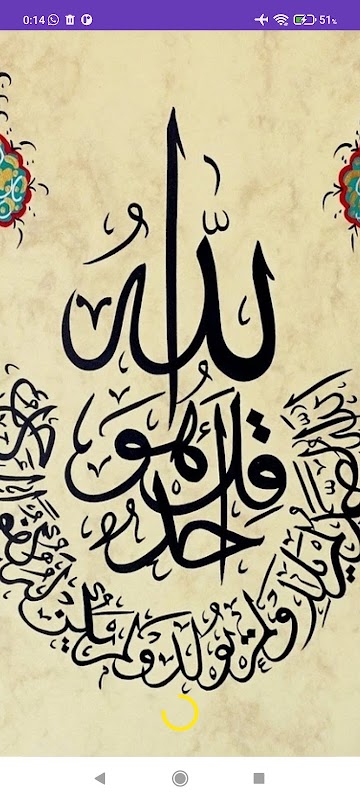 0:14
51%
قل هو الله أحد
الله الصمد لم يلد ولم يولد ولم يكن له كفوا